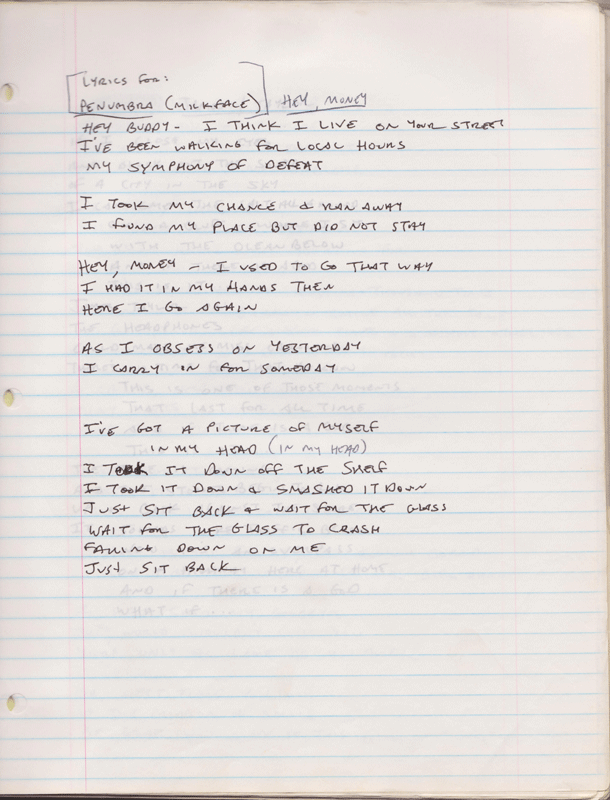 LYRICS FOR:
PENUMBRA (MILKFACE) HEY, MONEY
HEY BUDDY - I THINK I LIVE ON YOUR STREET
I'VE BEEN WALKING FOR LOCAL HOURS
MY SYMPHONY OF DEFEAT
I TOOK MY CHANCE & RAN AWAY
I FOUND MY PLACE BUT DID NOT STAY
HEY, MONEY - I USED TO GO THAT WAY
I HAD IT IN MY HANDS THEN
HERE I GO AGAIN
AS I OBSESS ON YESTERDAY
I CARRY IN FOR SOMEDAY
I'VE GOT A PICTURE OF MYSELF
IN MY HEAD (IN MY HEAD)
I TOOK IT DOWN OFF THE SHELF
I TOOK IT DOWN & SMASHED IT DOWN
JUST SIT BACK & WAIT FOR THE GLASS
WAIT FOR THE GLASS TO CRASH
FALLING DOWN ON ME
JUST SIT BACK